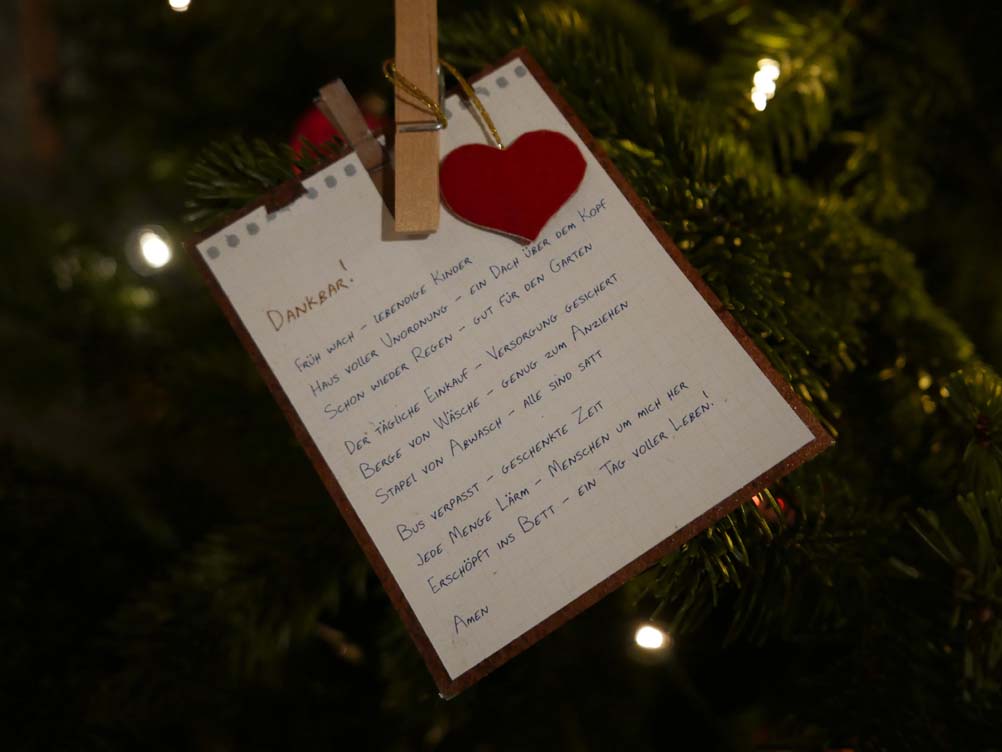 Dankbar!
Früh wach – lebendige Kinder
Haus voller Unordnung – ein Dach über dem Kopf
Schon wieder Regen – gut für den Garten
Der tägliche Einkauf – Versorgung gesichert
Berge von Wäsche – genug zum Anziehen
Stapel von Abwasch – alle sind satt
Bus verpasst – geschenkte Zeit
Jede Menge Lärm – Menschen um mich her
Erschöpft ins Bett – ein Tag voller Leben!
Amen